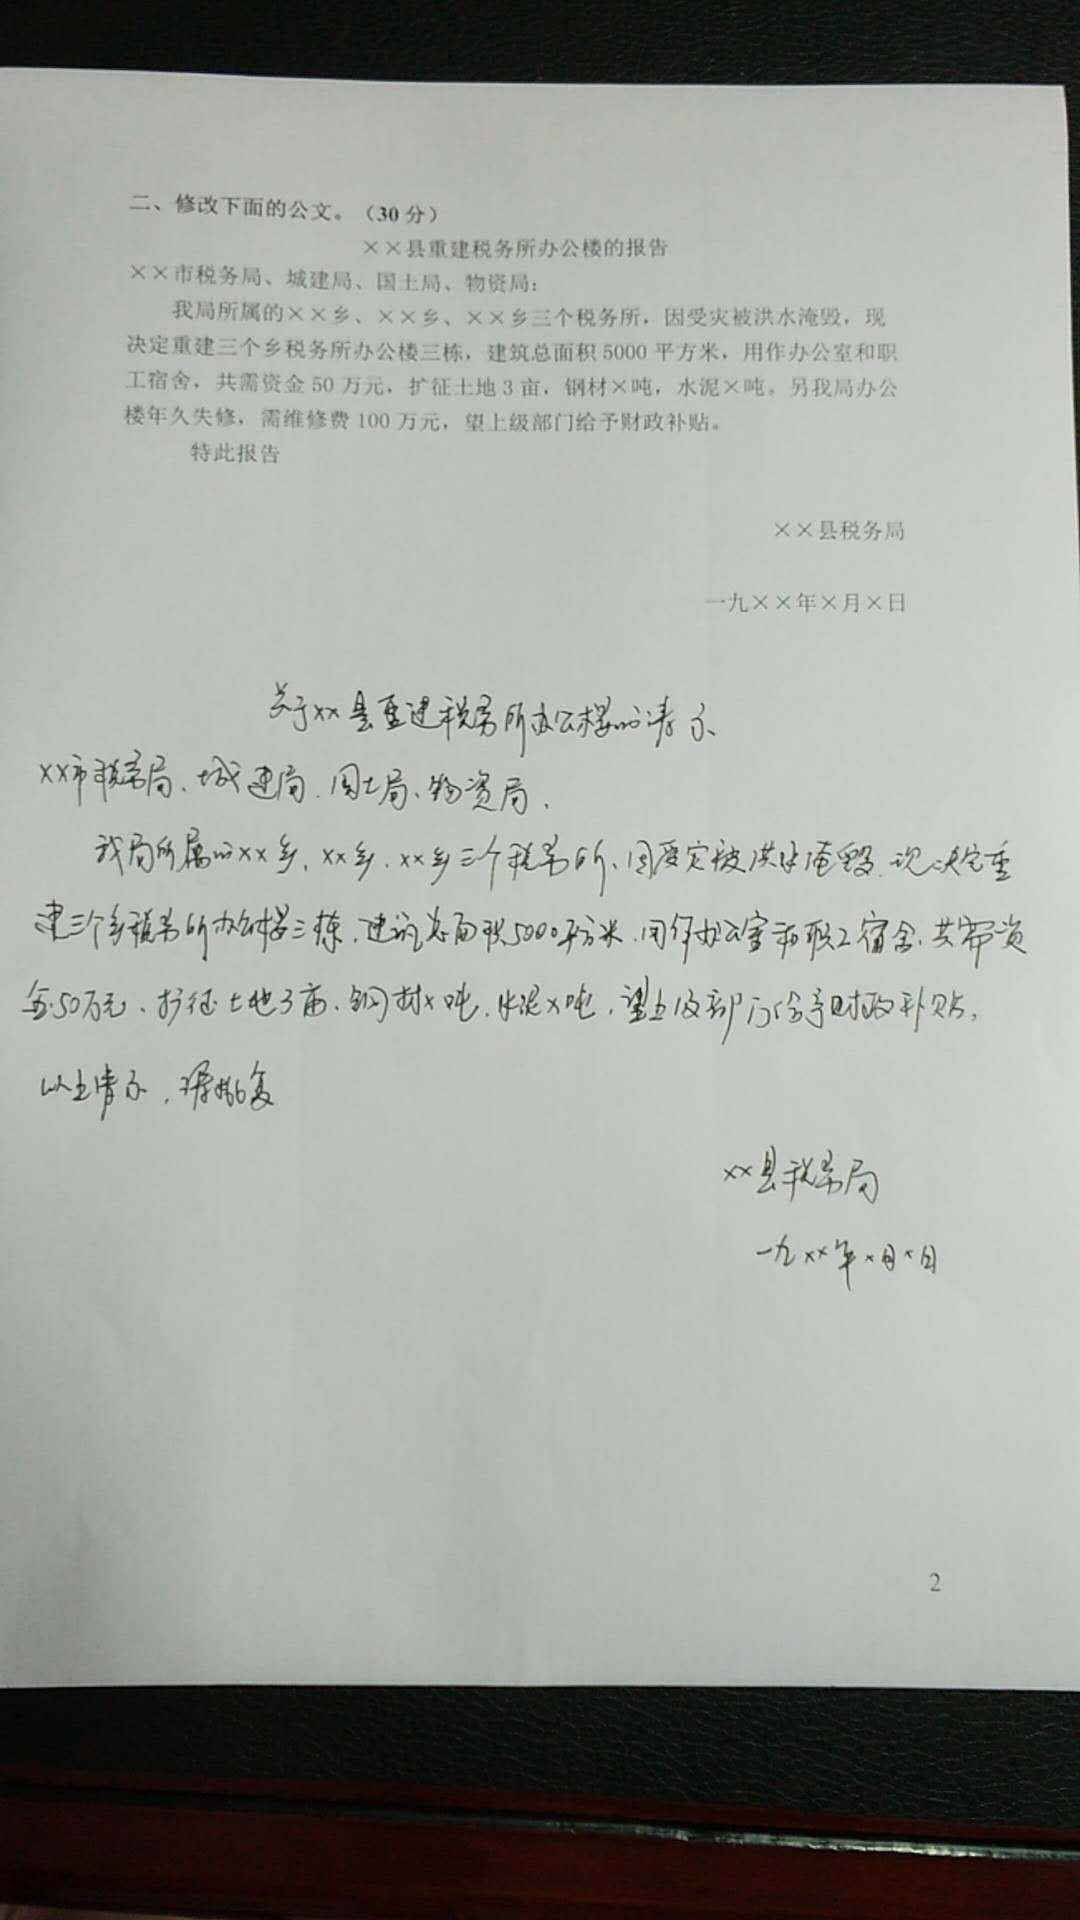 二、修改下面的公文。（30 分）
××县重建税务所办公楼的报告
××市税务局、城建局、国土局、物资局：
我局所属的××乡、××乡、××乡三个税务所，因受灾被洪水淹毁，现
决定重建三个乡税务所办公楼三栋，建筑总面积 5000 平方米，用作办公室和职
工宿舍，共需资金 50 万元，扩征土地 3 亩，钢材×吨，水泥×吨。另我局办公
楼年久失修，需维修费 100 万元，望上级部门给予财政补贴。
特此报告
××县税务局
一九××年×月×日
关于××县重建税务所办公楼的请示
××市税务局、城建局、国土局、物资局、
我局所属的××乡、××乡、××乡三个税务所、因受灾被洪水淹毁、现决定重
建三个乡税务所办公楼三栋，建筑总面积5000平方米，用作办公室和职工宿舍，共需资
金50万元、扩征土地3亩、钢材×吨，水泥×吨，望上级部门给予财政补贴。
以上请示，请批复
××县税务局
一九××年×月×日
2